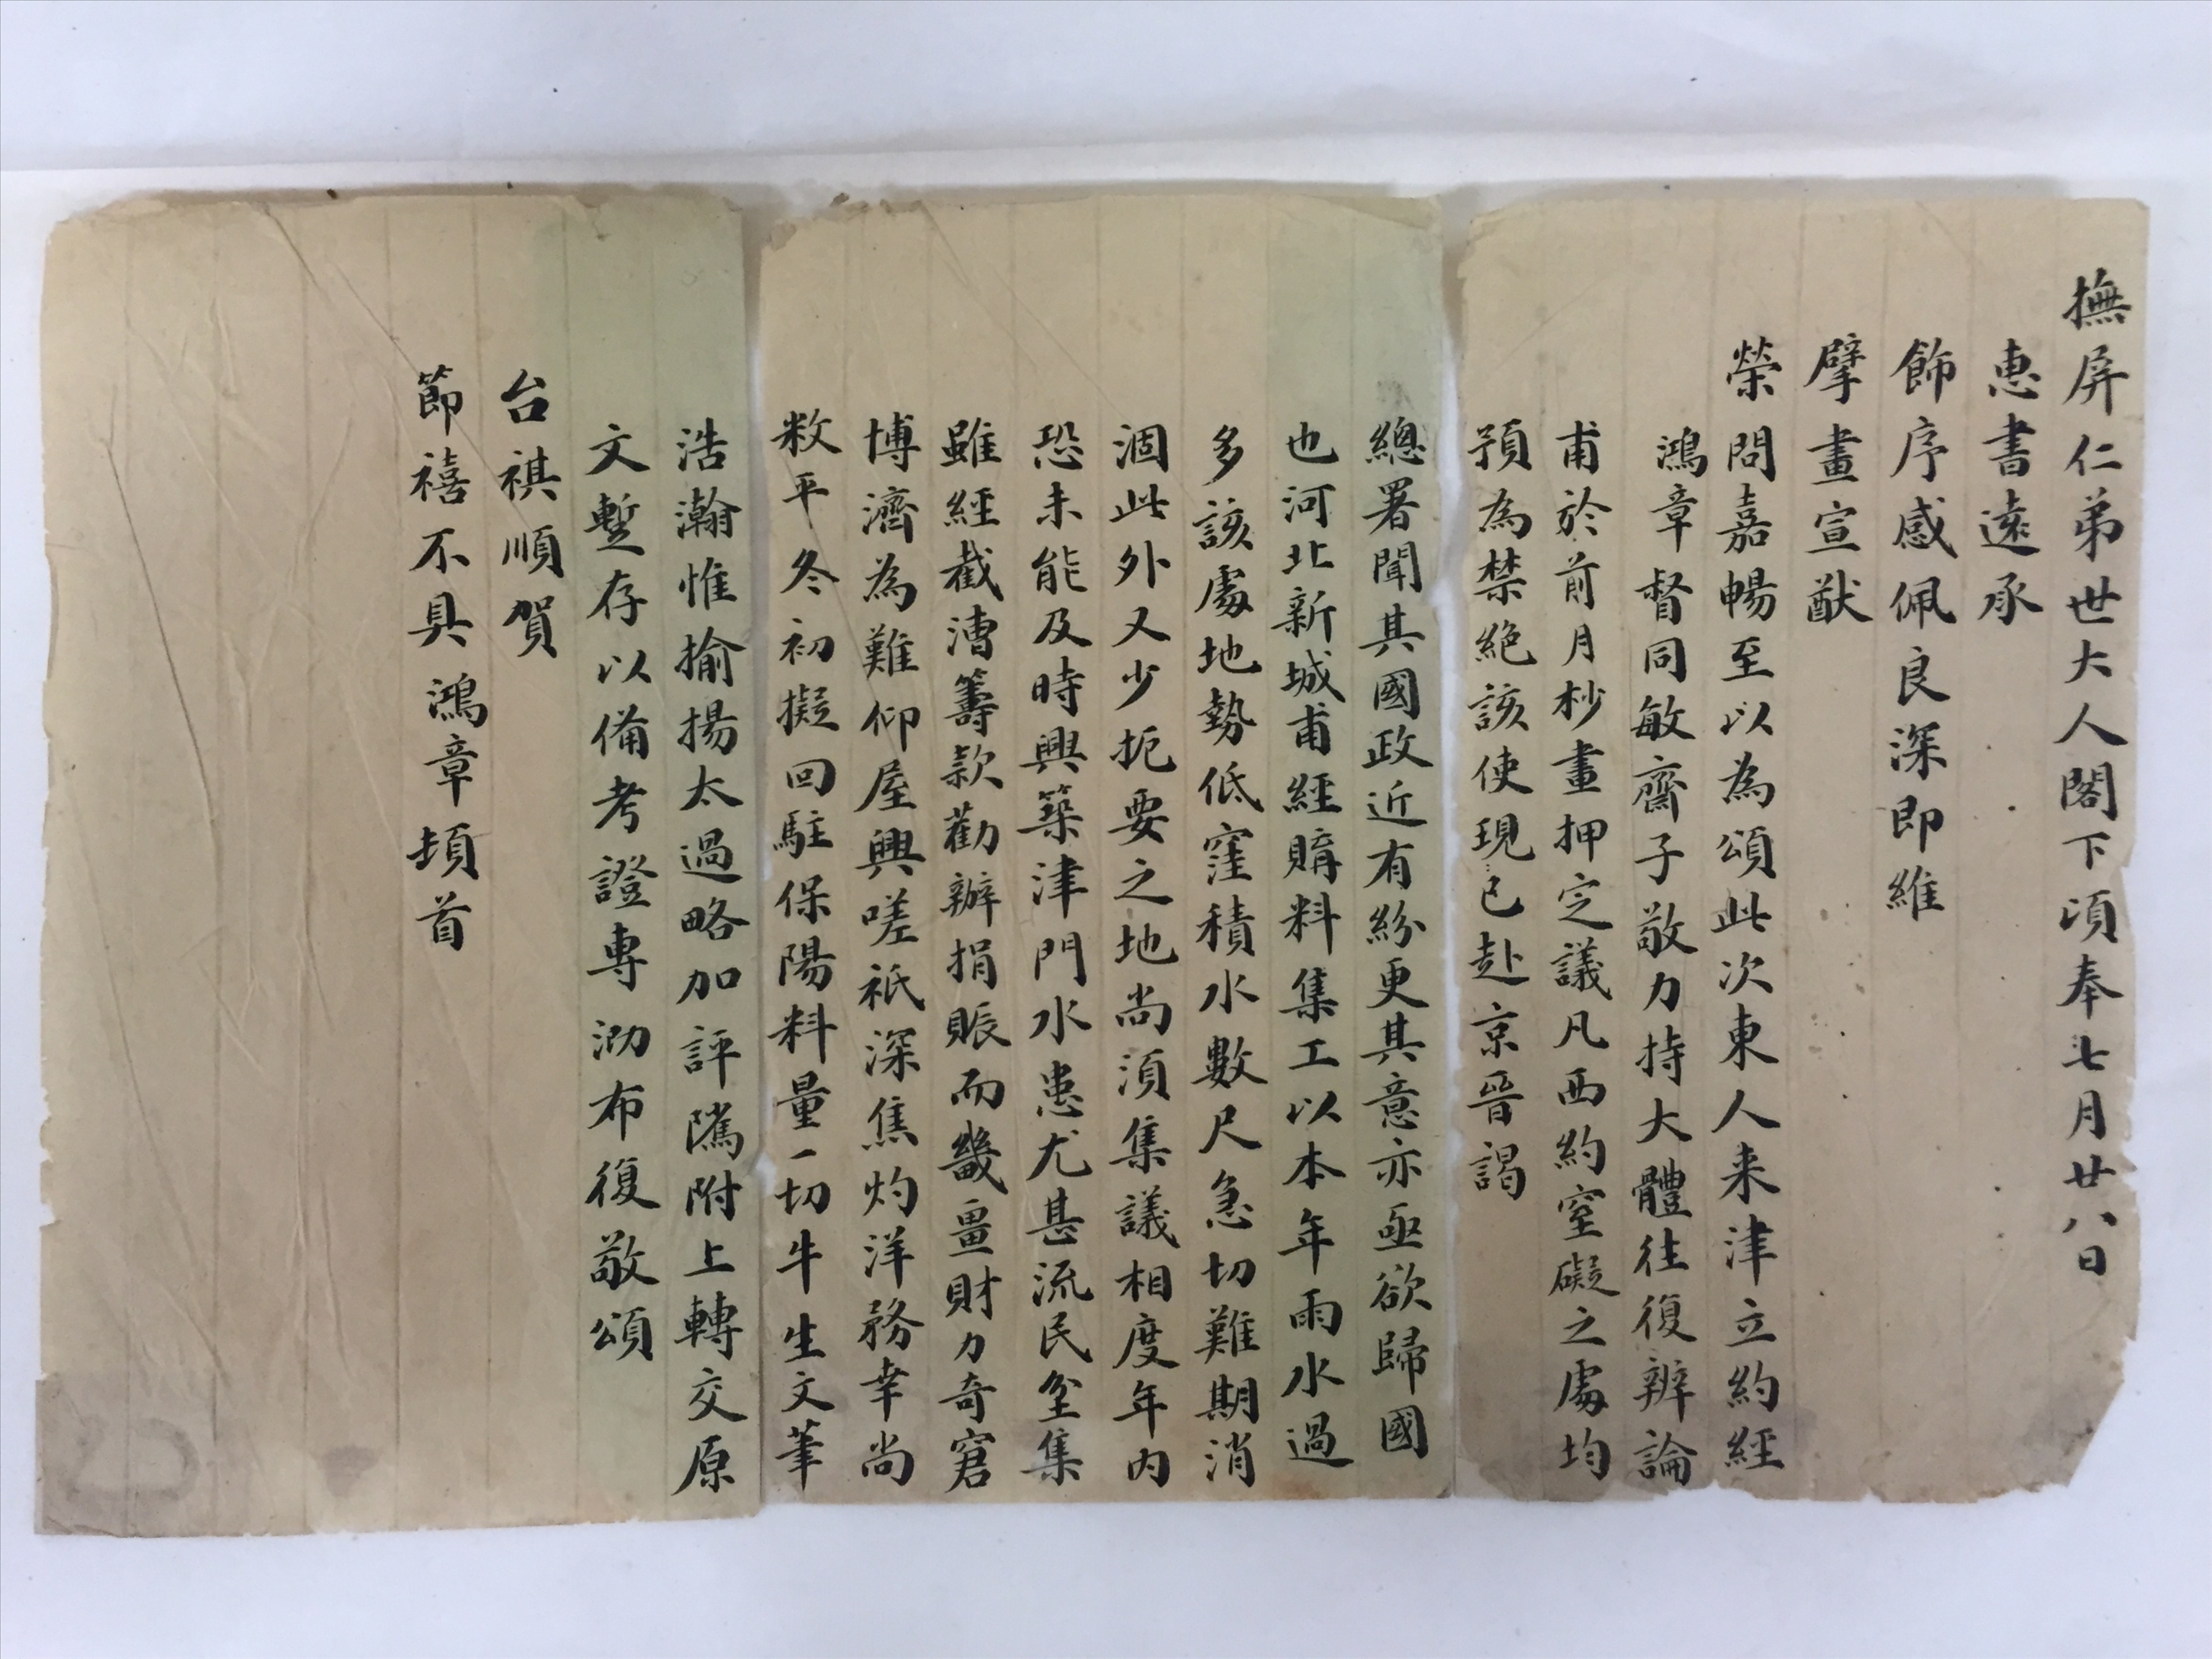 撫屏仁弟世大人閣下頃奉七月廿八日
惠書遠承
飾序感佩良深即維
擘畫宣猷
榮問嘉暢至以為頌此次東人来津立約經
鴻章督同敏齋子敬力持大體往復辨論
甫於前月杪畫押定議凡西約窒礙之處均
預為禁絕該使現已赴京晉謁
總署聞其國政近有紛更其意亦亟欲歸國
也河北新城甫經購料集工以本年雨水過
多該處地勢低窪積水數尺急切難期消
涸此外又少扼要之地尚須集議相度年内
恐未能及時興築津門水患尤甚流民坌集
雖經截漕籌款勸辦捐賑而畿畺財力奇窘
博濟為難仰屋興嗟祇深焦灼洋務幸尚
敉平冬初擬回駐保陽料量一切牛生文筆
浩瀚惟揄揚太過略加評隲附上轉交原
文暫存以備考證專泐布復敬頌
台祺順賀
節禧不具鴻章頓首